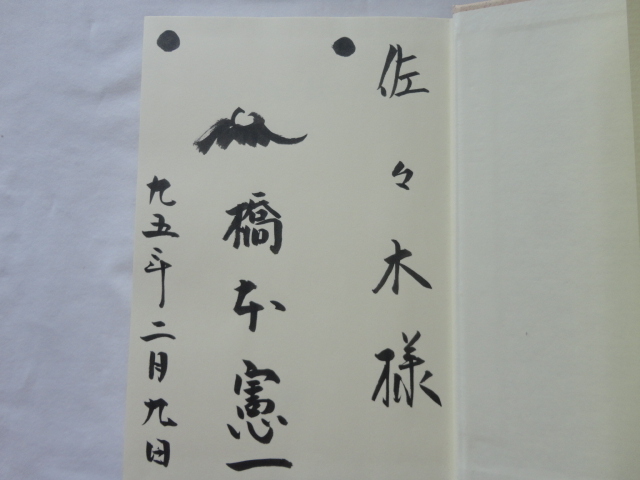 佐々木様
橋本憲一
九五年二月九日